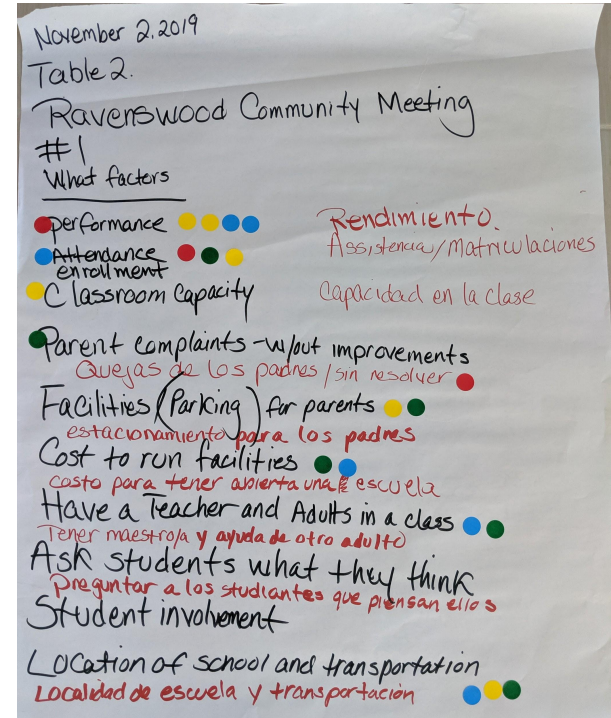 November 2, 2019
Table 2.
Ravenswood Community Meeting
#1
What factors
performance Rendimiento.
Attendance Assistencia/Matriculaciones
enrollment
Classroom Capacity Capacidad en la clase
Parent complaints - w/out improvements
Quejas de los padres / sin resolver
Facilities (Parking) for parents
estacionamiento para los padres
Cost to run facilities
Costo para tener abierta una escuela
Have a Teacher and Adults in a class
Tener maestro/a y ayuda de otro adulto
Ask students what they think
Preguntar a los studiantes que piensan ellos
Student involvement
Location of school and transportation
Localidad de escuela y transportación